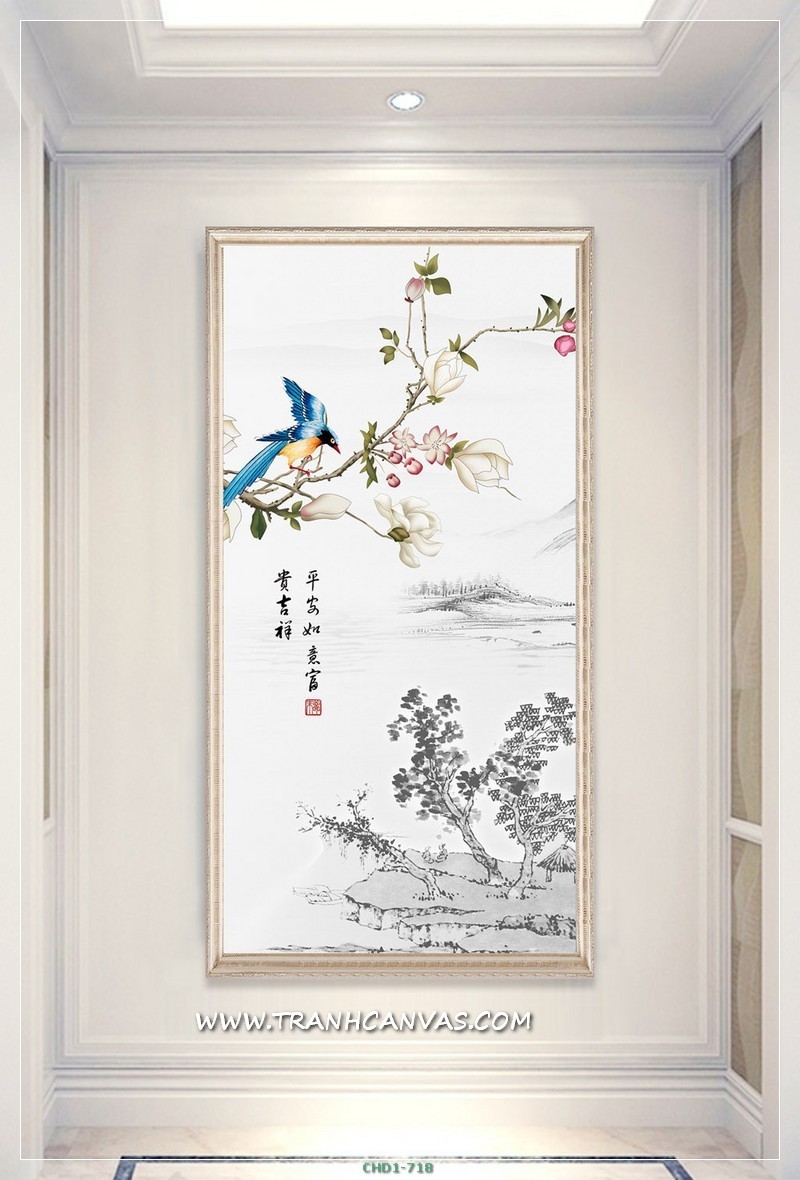 平安如意富
貴吉祥
WWW.TRANHCANVAS.COM
CHD1-718